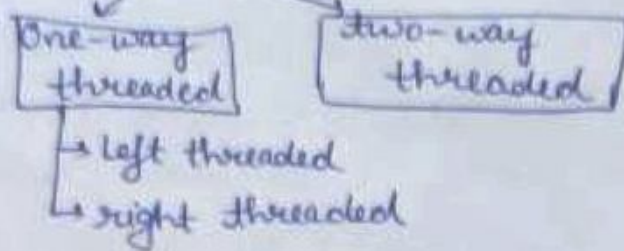 One-way
threaded
two-way
threaded
Left threaded
right threaded